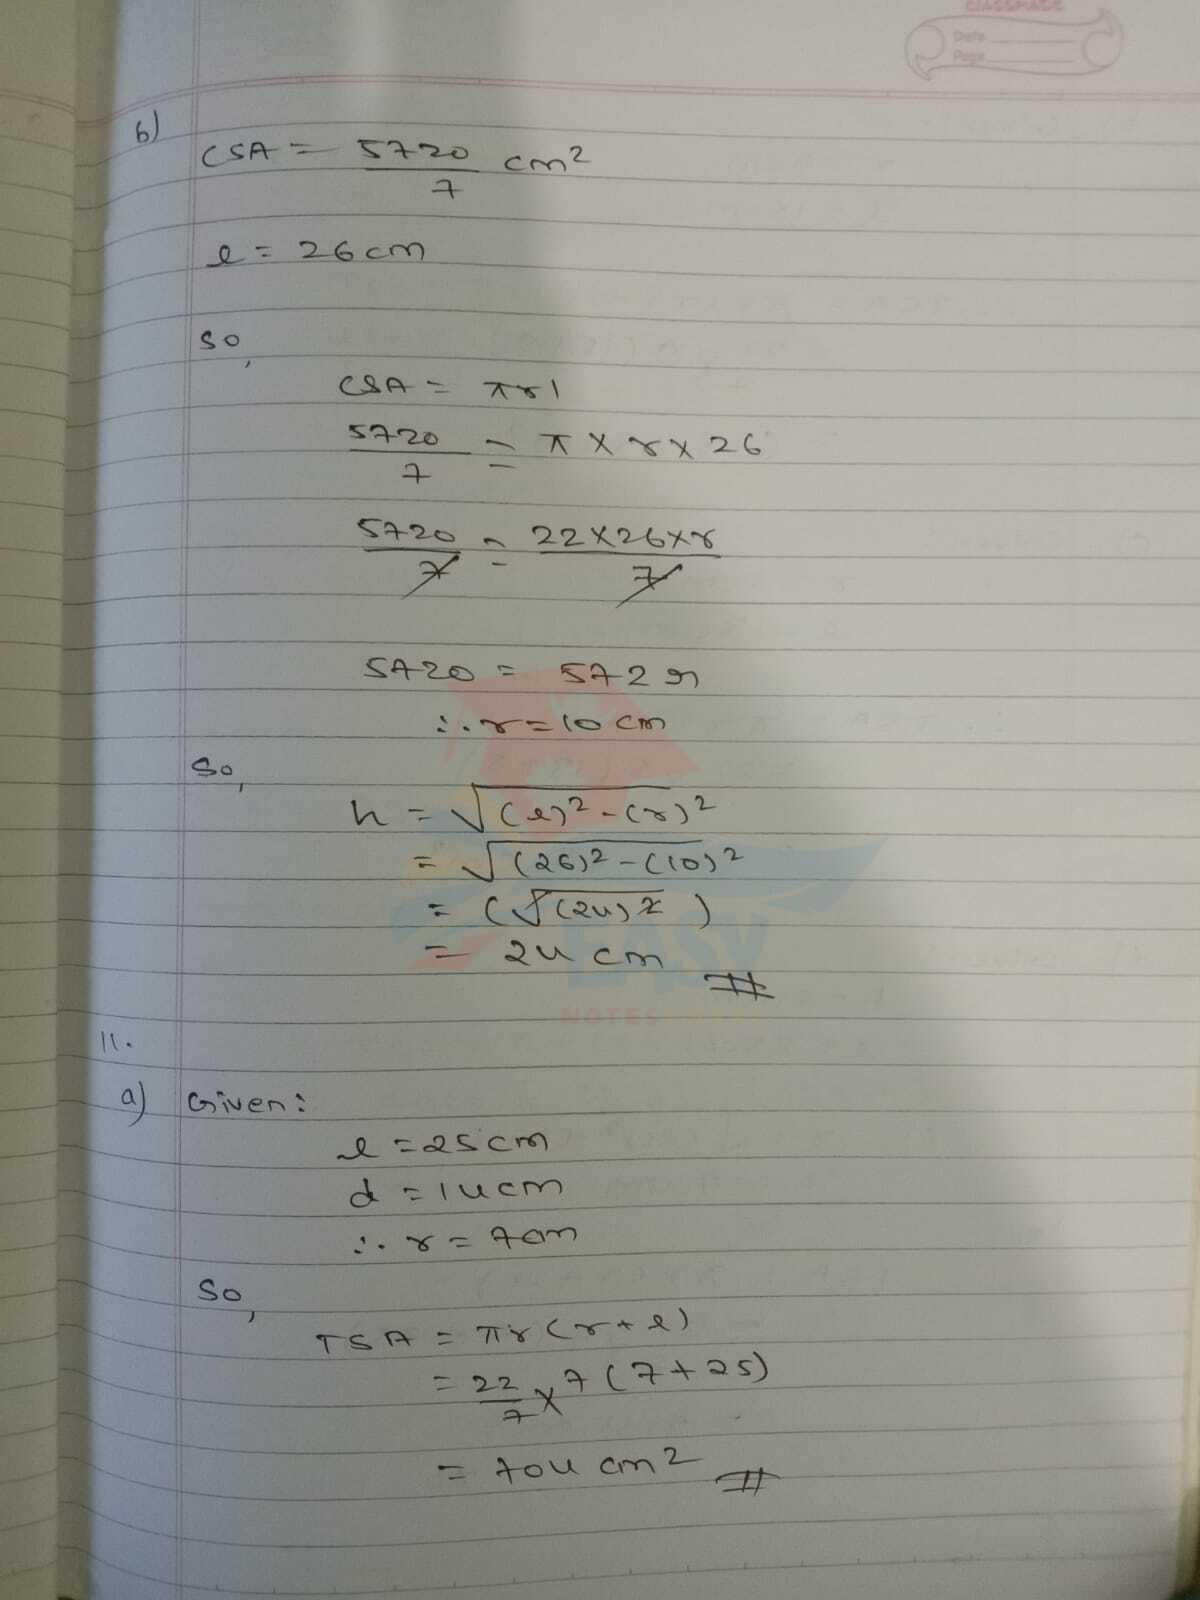 CLASSMATE
Date
Page
b)
CSA = 5720/7 cm²
l = 26 cm
So,
CSA = πrl
5720/7 = π × r × 26
5720/7 = 22×26×r/7
5720 = 572 r
∴ r = 10 cm
So,
h = √(l)² - (r)²
= √(26)² - (10)²
= (√(24)²)
= 24 cm
EASY
NOTES
11.
a) Given:
l = 25 cm
d = 14 cm
∴ r = 7 cm
So,
TSA = πr (r + l)
= 22/7 × 7 (7 + 25)
= 704 cm²